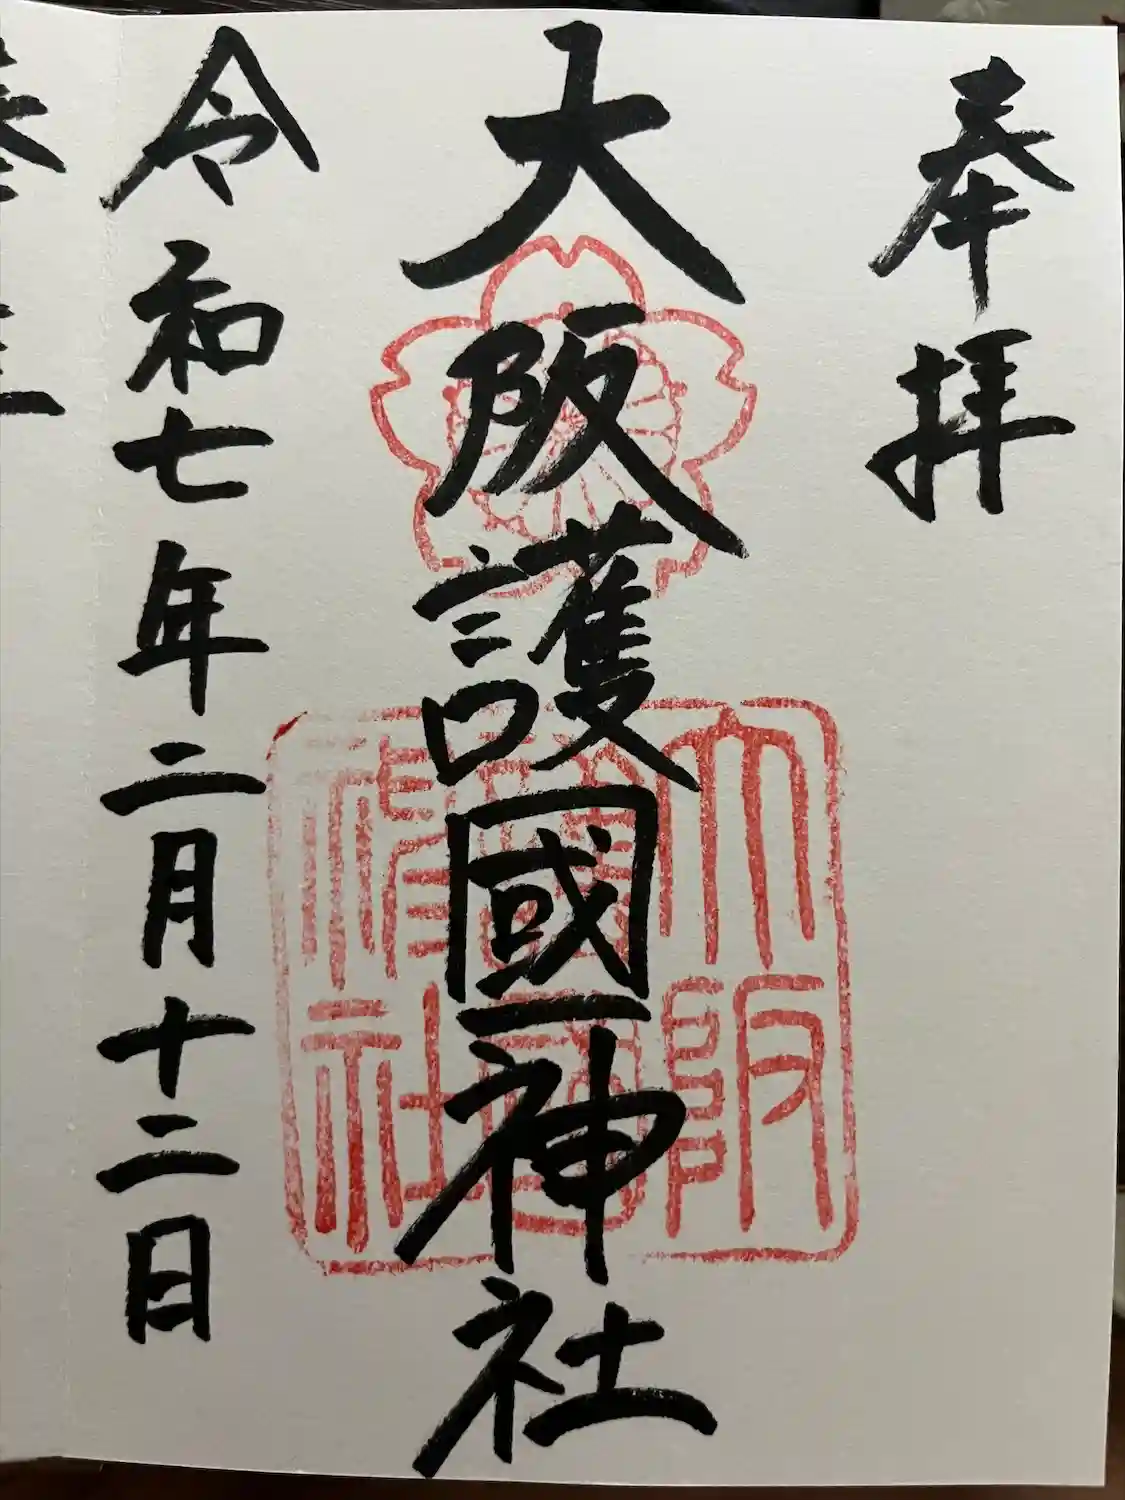 奉拝
大阪護國神社
令和七年二月十二日
大阪護國神社